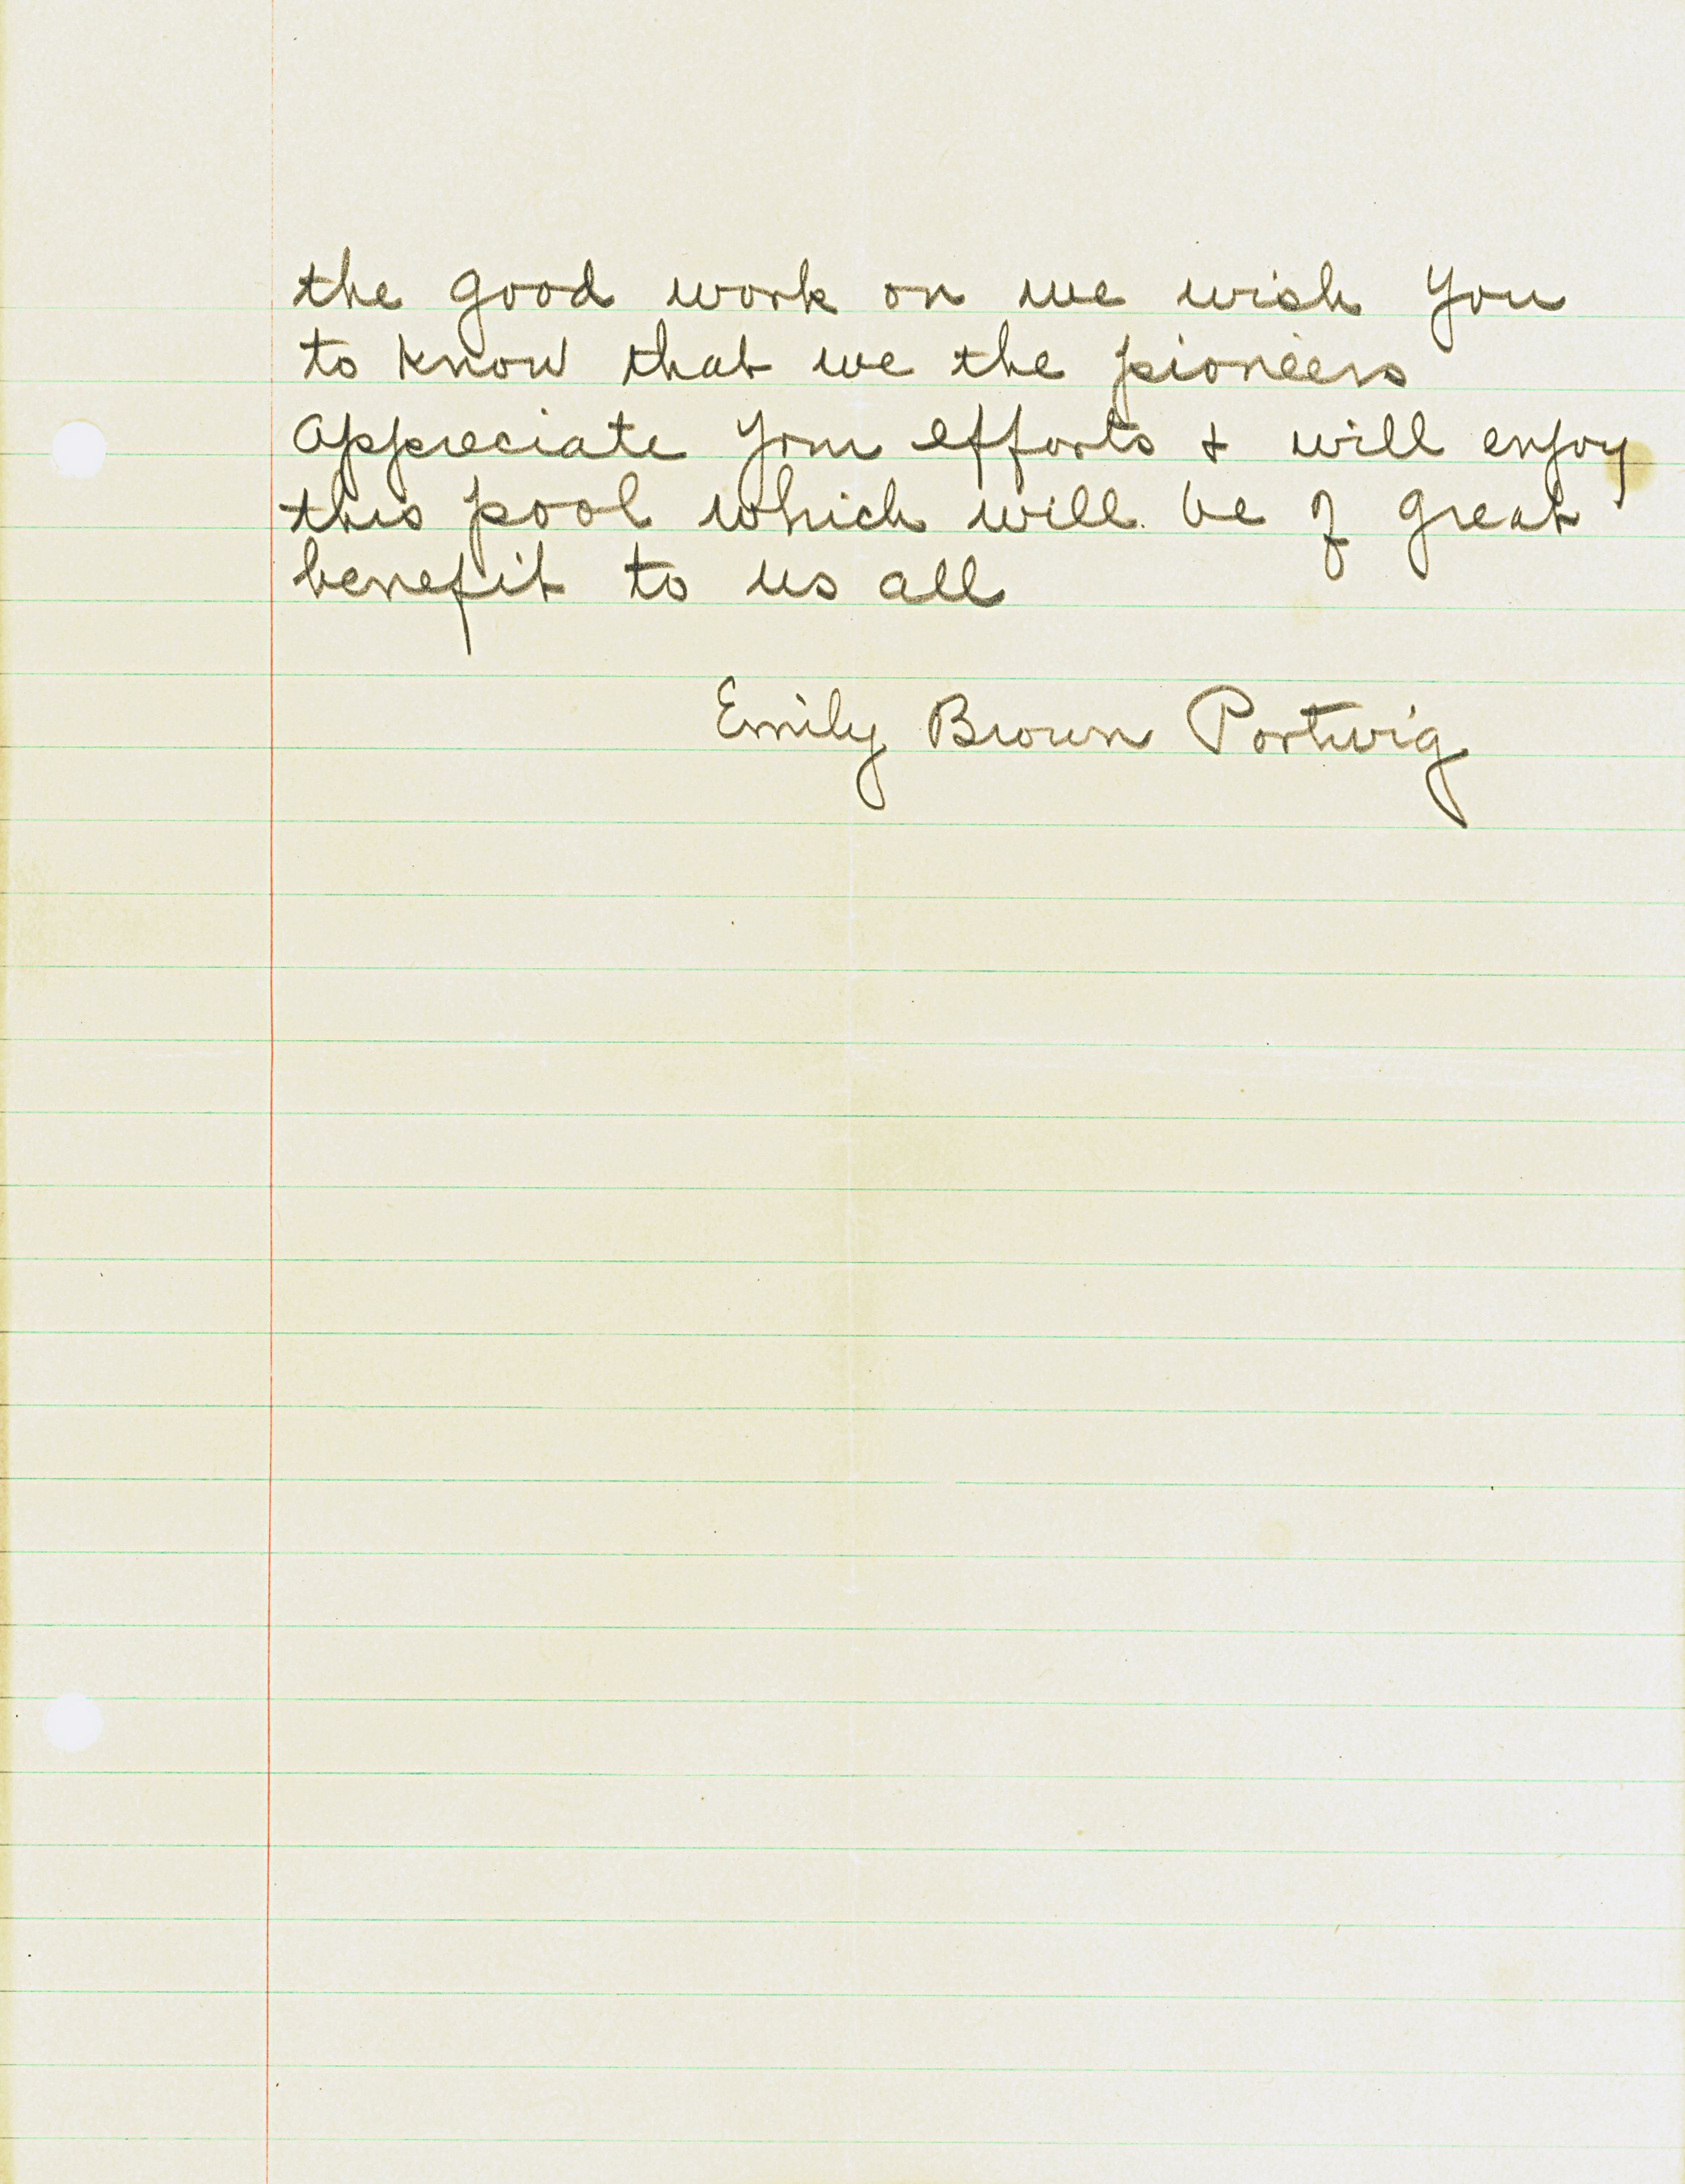 the good work on we wish you
to know that we the pioneers
appreciate your efforts & will enjoy
this pool which will be of great
benefit to us all
Emily Brown Portwig